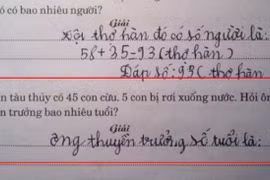 ó có bao nhiêu người?
Giải
Đội thợ hàn đó có số người là:
58 + 35 = 93 (thợ hàn)
Đáp số: 93 (thợ hàn
n tàu thủy có 45 con cừu. 5 con bị rơi xuống nước. Hỏi ôn
n trưởng bao nhiêu tuổi?
Giải
Ông thuyền trưởng số tuổi là: